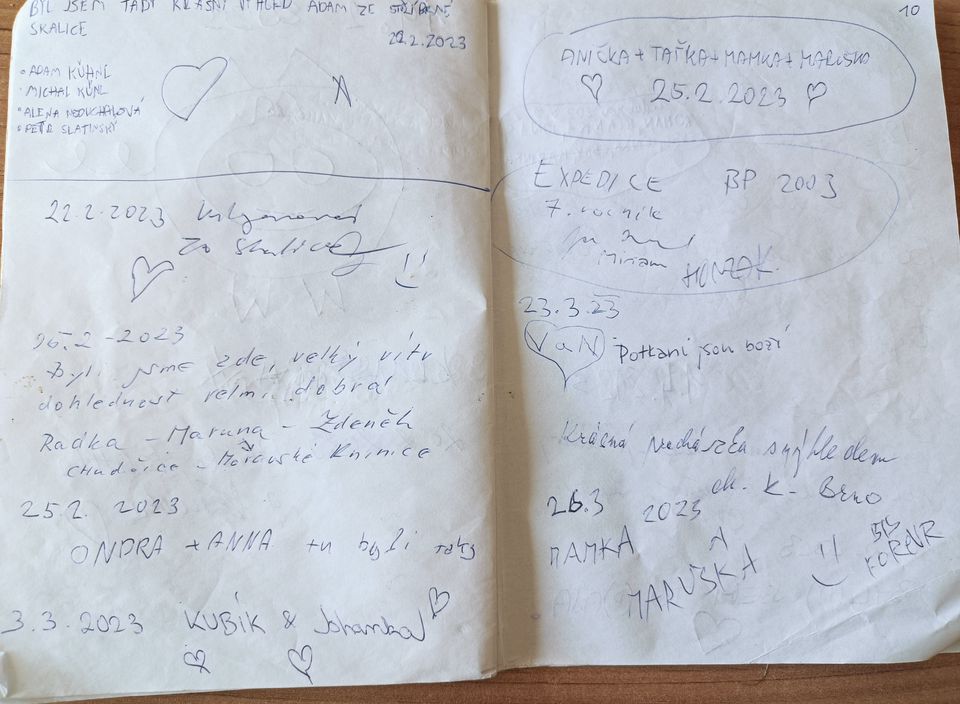 BYL JSEM TADY KRÁSNÍ VÍHLED ADAM ZE STŘÍBRNÉ
SKALICE
22.2.2023
• ADAM KÜHNL
• MICHAL KÜHL
• ALENA
• PETR SLATINSKÝ
22.2.2023
Ze Skalice
26.2-2023
Byli jsme zde, velký vítr
dohlednost velmi dobrá!
Radka - Maruna - Zdeněk
CHudčice - Moravské Knínice
25.2. 2023
ONDRA + ANNA tu byli taky
3.3.2023 KUBÍK & Johanka
10
ANIČKA + TAŤKA + MAMKA + MARUŠKA
25.2.2023
EXPEDICE BP 2003
7. ročník
Miriam HONZAK
23.3.23
VaN Potkani jsou boží
Krásná procházka s výhledem
ch. K. Brno
26.3 2023
MAMKA
MARUŠKA
BTS
FOREVR